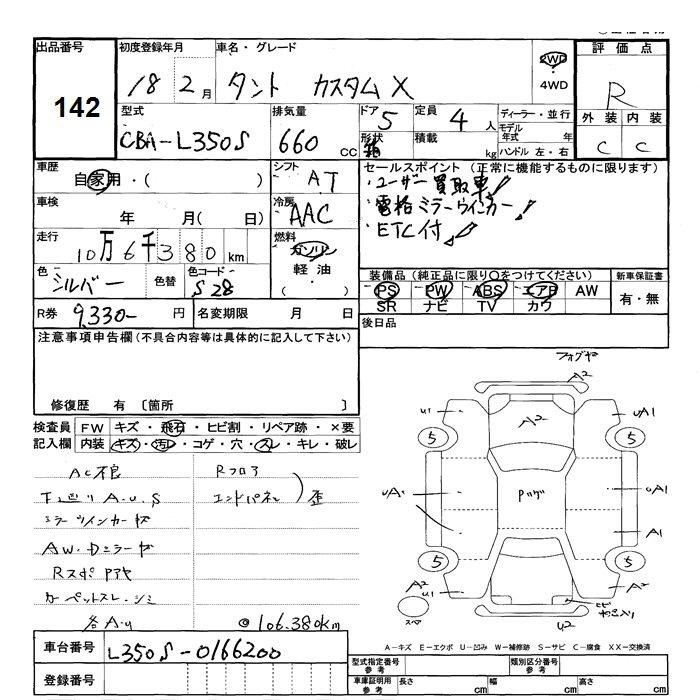 出品番号
142
初度登録年月
18 2月
車名・グレード
タント カスタムX
2WD
・
4WD
評価点
R
型式
CBA-L350S
排気量
660 CC
ドア
5
形状
箱
定員
4人
積載 kg
ディーラー・並行
モデル
年式 年
ハンドル 左・右
外装 内装
C C
車歴
自家用・( )
シフト
AT
セールスポイント (正常に機能するものに限ります)
・ユーザー買取車!
・電格ミラーウインカー!
・ETC付!
車検
年 月( 日)
冷房
AAC
走行
10万6千380km
燃料
ガソリン
軽油・
( )
色
シルバー
色替
色コード
S28
装備品 (純正品に限り〇をつけてください)
PS PW ABS エアB AW
SR ナビ TV カワ
新車保証書
有・無
R券 9,330- 円
名変期限 月 日
後日品
注意事項申告欄 (不具合内容等は具体的に記入して下さい)
修復歴 有 〔箇所 〕
検査員
記入欄
FW キズ・飛石・ヒビ割・リペア跡・×要
内装 キズ・汚レ・コゲ・穴・スレ・キレ・破レ
AC不良
ミラーウインカーヤブ
AW・Dミラーヤブ
カーペットスレ・シミ
各A・U
Rフロア
エンドパネル
歪
@106.380km
A2
A2
U1
UA1
5
5
UA1
UA1
A1
5
5
A2
U1
A2
U2
A-キズ E-エクボ U-凹み W-補修跡 S-サビ C-腐食 XX-交換済
車台番号
L350S-0166200
登録番号
型式指定番号
参考
類別区分番号
参考
車庫証明用
参考
長さ cm
幅 cm
高さ cm